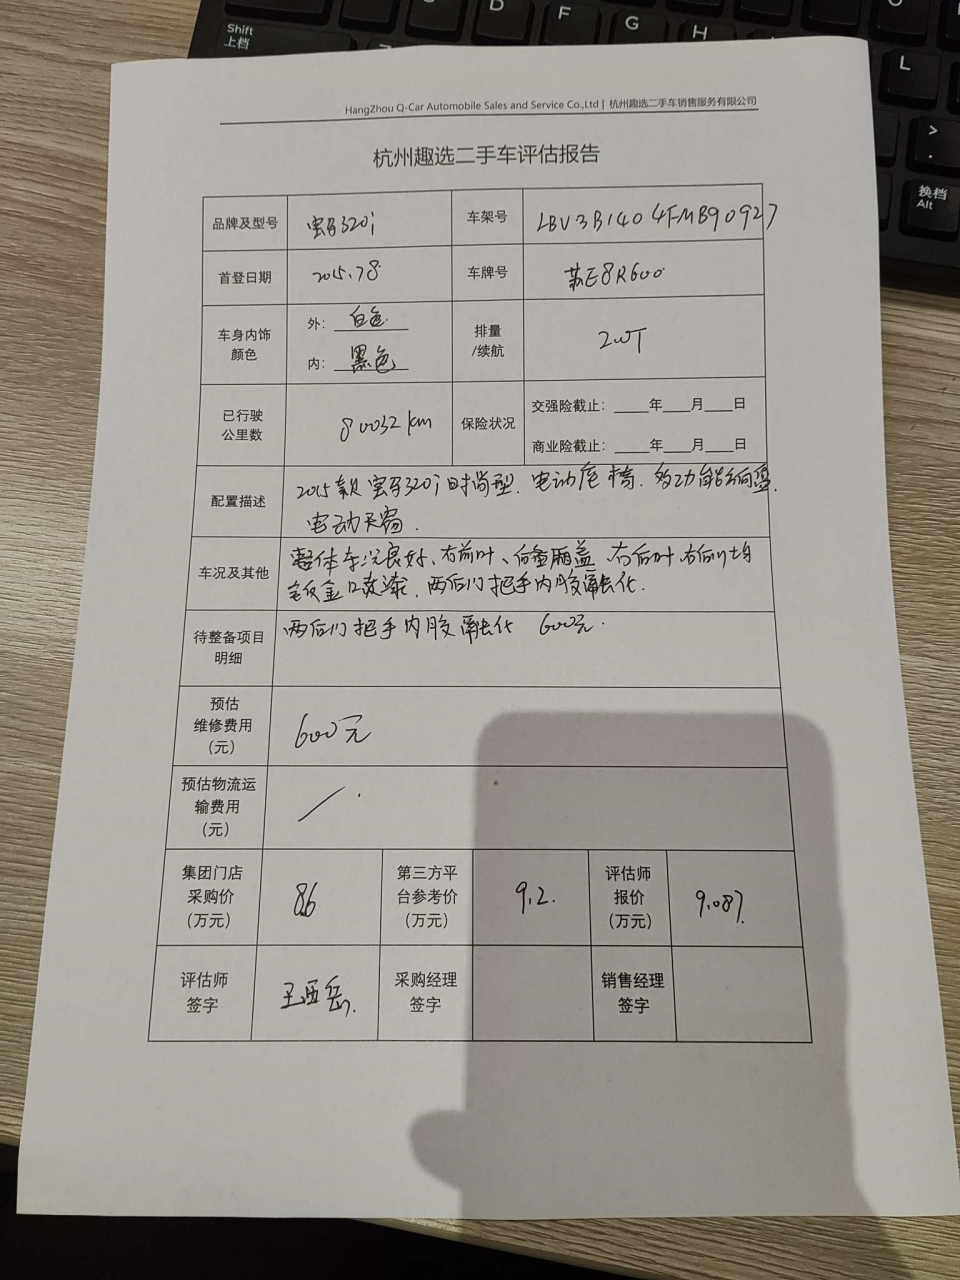 Shift
上档
D
F
G
H
L
>
.
换档
Alt
HangZhou Q-Car Automobile Sales and Service Co.,Ltd | 杭州趣选二手车销售服务有限公司
杭州趣选二手车评估报告
品牌及型号 宝马320i 车架号 LBV3B1404FMB90927
首登日期 2015.7.8 车牌号 苏E8R600
车身内饰 外: 白色 排量
颜色 内: 黑色 /续航 2.0T
已行驶 80032km 保险状况 交强险截止: ____年____月____日
公里数 商业险截止: ____年____月____日
配置描述 2015款宝马320i时尚型、电动座椅、多功能方向盘、
电动天窗.
车况及其他 整体车况良好、右前叶、后备厢盖、右后叶、右后门均
钣金喷漆、两后门把手内胶融化.
待整备项目 两后门把手内胶融化 600元.
明细
预估
维修费用 600元
(元)
预估物流运
输费用 /
(元)
集团门店 第三方平 评估师
采购价 8.6 台参考价 9.2. 报价 9.087.
(万元) (万元) (万元)
评估师 王西岳. 采购经理 销售经理
签字 签字 签字